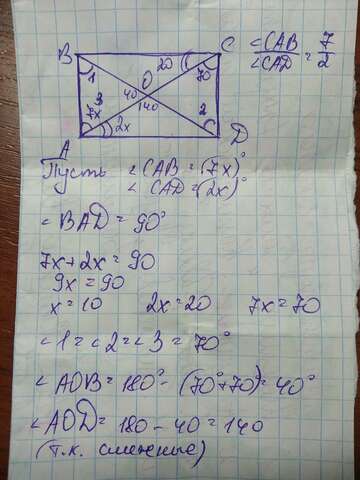 B 20 C ∠CAB/∠CAD = 7/2
1 O 70
40
3 140 2
7x 2x
A D
Пусть ∠CAB = (7x)°
∠CAD = (2x)°
∠BAD = 90°
7x + 2x = 90
9x = 90
x = 10 2x = 20 7x = 70
∠1 = ∠2 = ∠3 = 70°
∠AOB = 180° - (70° + 70) = 40°
∠AOD = 180 - 40 = 140
(т.к. смежные)